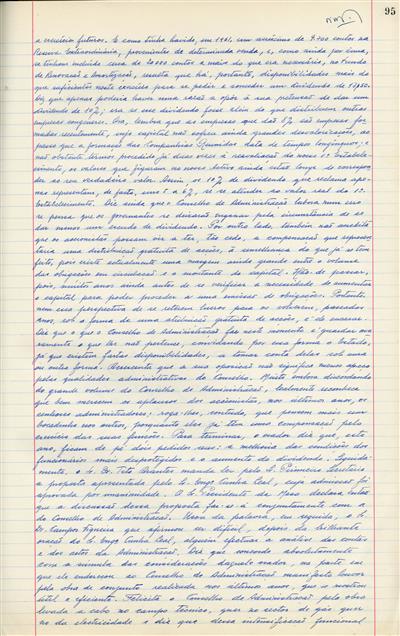 95
a exercícios futuros. E como tinha havido, em 1961, um acréscimo de 9.700 contos na
Reserva Extraordinária, provenientes de determinada venda, e, como ainda por cima,
se tinham incluído cerca de 20.000 contos a mais do que era necessário, no Fundo
de Renovação e Amortização, resulta que há, portanto, disponibilidades mais do
que suficientes neste exercício para se pedir e conceder um dividendo de
Crê que apenas poderia haver uma razão a opôr à sua pretensão de dar um
dividendo de 10%; era se esse dividendo fosse além do que distribuem outras
empresas congéneres. Ora, lembra que as empresas que dão 8% são empresas for-
madas recentemente, cujo capital não sofreu ainda grandes desvalorizações, ao
passo que a formação das Companhias Reunidas data de tempos longínquos; e
não obstante termos procedido já duas vezes à reavaliação do nosso 1º Estabele-
cimento, os valores que figuram no nosso Activo ainda estão longe de correspon-
der ao seu verdadeiro valor. Assim os 10% de dividendo que reclama ape-
nas representam, de facto, uns 5 a 6%, se se atender ao valor real do 1º
Estabelecimento. Diz ainda que o Conselho de Administração labora num erro
se pensa que os governantes se deixarão enganar pela circunstância de se
dar menos um escudo de dividendo. Por outro lado, também não acredita
que os accionistas possam vir a ter, tão cedo, a compensação que represen-
taria uma distribuição gratuita de acções, à semelhança do que já se tem
feito, pois existe actualmente uma margem ainda grande entre o volume
das obrigações em circulação e o montante do capital. Hão-de passar,
pois, muitos anos ainda antes de se verificar a necessidade de aumentar
o capital para poder proceder a uma emissão de obrigações. Portanto,
nem essa perspectiva de se reterem lucros para os receberem, passados
anos, sob a forma de uma atribuição gratuita de acções, é de encarar.
Diz que o que o Conselho de Administração faz neste momento é guardar ava-
ramente o que lhe não pertence, convidando por essa forma o Estado,
já que existem fartas disponibilidades, a tomar conta delas sob uma
ou outra forma. Acrescenta que a sua oposição não significa menos apreço
pelas qualidades administrativas do Conselho. Muito embora discordando
do grande volume do Conselho de Administração, lealmente reconhece
que bem merecem os aplausos dos accionistas, nos últimos anos, os
senhores administradores; roga-lhes, contudo, que pensem mais um
bocadinho nos outros, porquanto eles já têm uma compensação pelo
exercício das suas funções. Para terminar, o orador diz que, este
ano, ficam de pé dois pedidos seus: a melhoria das condições dos
funcionários mais desprotegidos e o aumento de dividendo. Seguida-
mente, o Sr. Dr. Tito Arantes manda ler pelo Sr. Primeiro Secretário
a proposta apresentada pelo Sr. Engº Cunha Leal, cuja admissão foi
aprovada por unanimidade. A Sr. Presidente da Mesa declara então
que a discussão dessa proposta far-se-á conjuntamente com a
do Conselho de Administração. Usou da palavra, em seguida, o Sr.
Dr. Campos Figueira que afirmou ser difícil, depois da brilhante
oração do Sr. Engº Cunha Leal, alguém efectuar a análise das contas
e dos actos da Administração. Diz que concorda absolutamente
com a súmula das considerações daquele orador, na parte em
que ele endereçou ao Conselho de Administração manifesto louvor
pela obra de conjunto realizada nos últimos anos, que se mostrou
útil e eficiente. Felicita o Conselho de Administração pela obra
levada a cabo no campo técnico, quer no sector do gás quer
no da electricidade e diz que dessa intensificação funcional